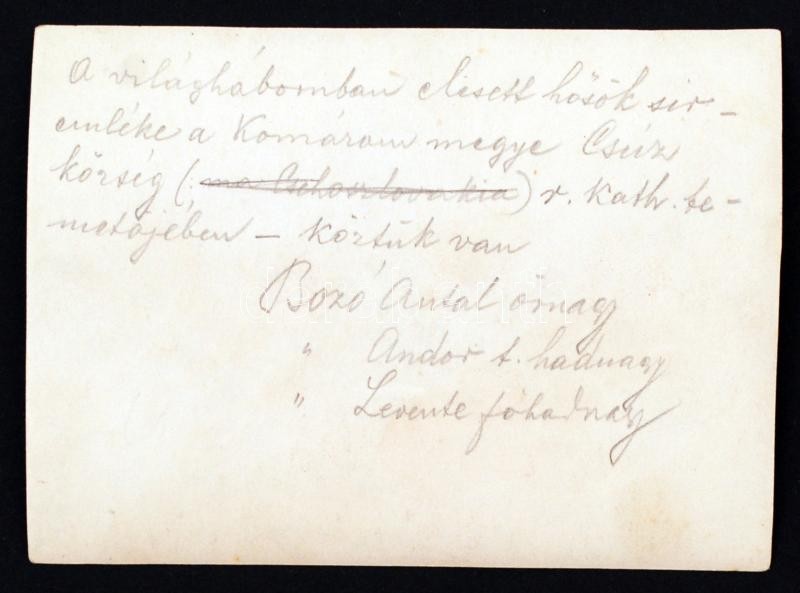 A világháborúban elesett hősök sír-
emléke a Komárom megye Csúz
község (: ma Csehoszlovakia) r. kath. te-
metőjében – köztük van
Bozó Antal őrnagy
" Andor t. hadnagy
" Levente főhadnagy